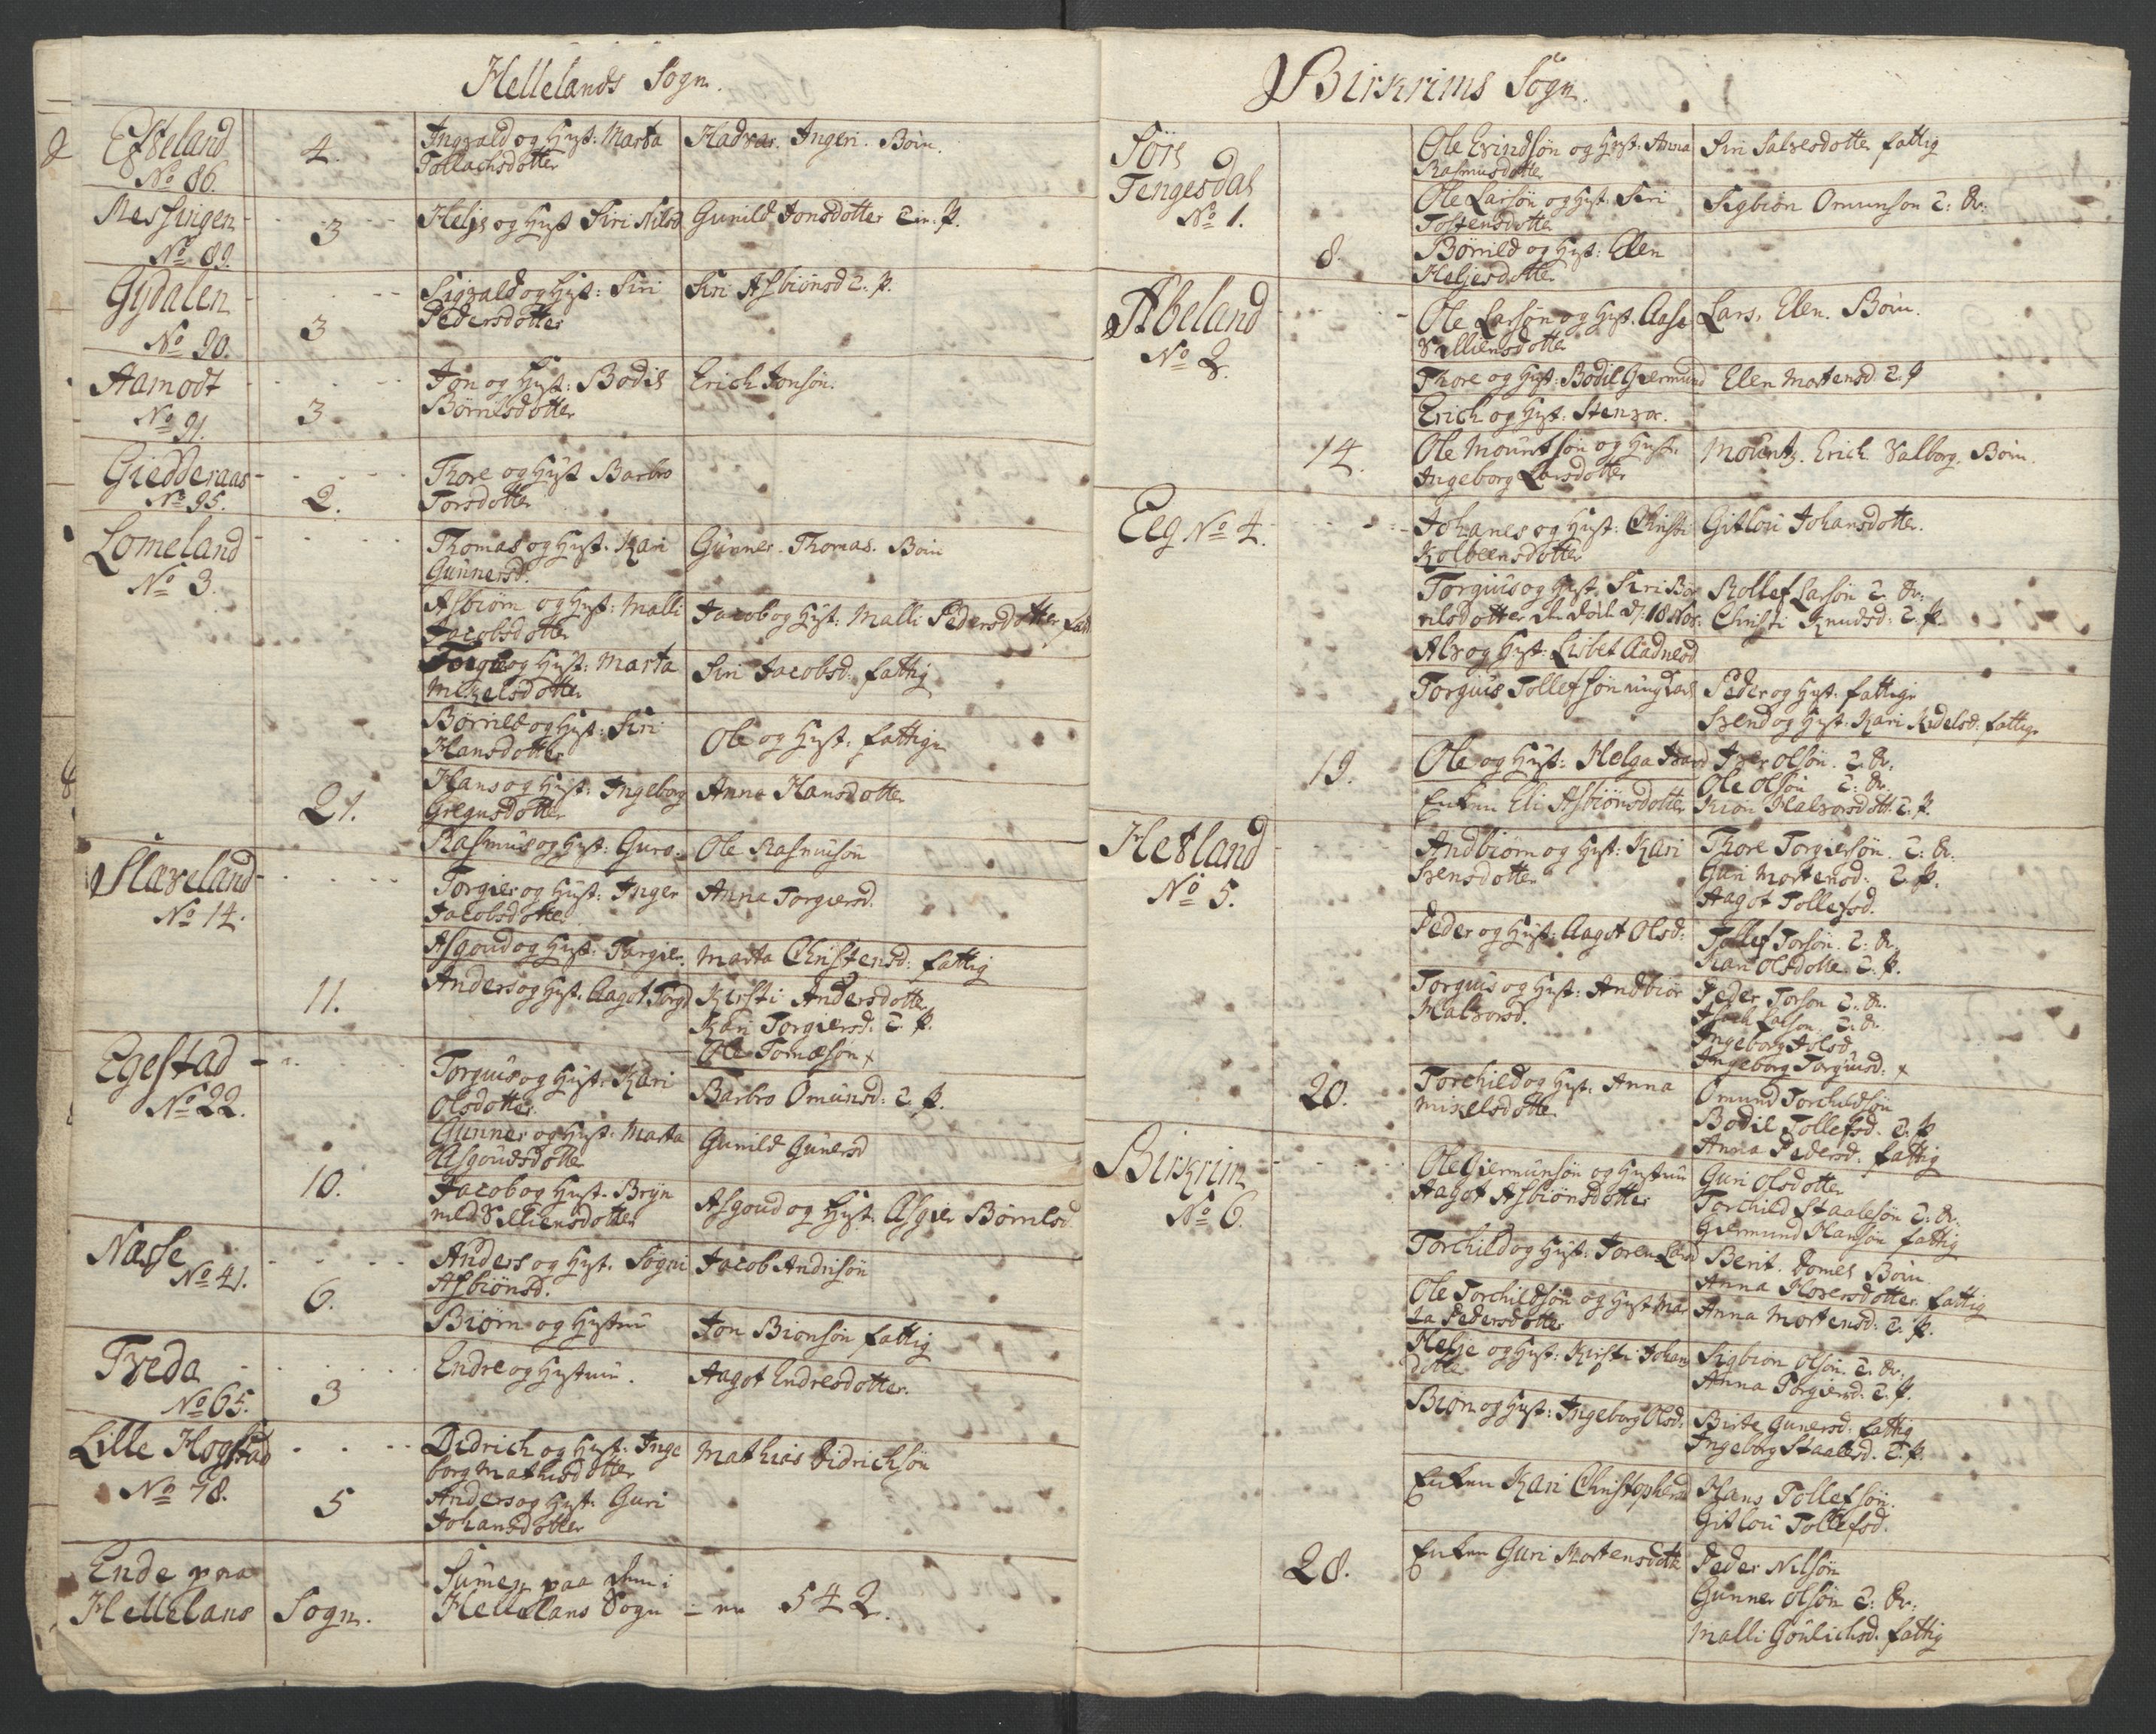 Hellelands Sogn.
Efteland
No 86.
4.
Ingvald og Hust: Marta
Tollachsdotter
Hadvar. Ingeri. Börn.
Messingen
No 89.
3
Helje og Hust Siri Nilsd
Gunild Jonsdotter T. P.
Gydalen
No 90.
3
Sigvald og Hust: Siri
Pedersdotter
Siri Asbiönsd T. P.
Aamodt
No 91.
3
Jon og Hust: Bodil
Börnilsdotter
Erich Jonsön.
Giedderaas
No 95.
2.
Thore og Hust Barbro
Torsdotter
Lomeland
No 3.
Thomas og Hust. Kari
Gunnersd.
Gunner. Thomas. Börn
Asbiörn og Hust: Malli
Jacobsdotter
Jacob og Hust: Malli Pedersdotter fatt.
og Hust: Marta
Mikelsdotter
Siri Jacobsd: fattig
Börnild og Hust: Siri
Hansdotter
Ole og Hust: fattige
21.
Hans og Hust: Ingeborg
Gregusdotter
Anna Hansdotter
Rasmus og Hust: Guro.
Ole Rasmusön
Slaveland
No 14.
Torgier og Hust: Inger
Jacobsdotter
Anna Torgiersd.
Asgoud og Hust: Torgier.
Marta Christensd: fattig
11.
Anders og Hust. Aagot Torgd
Kirsti Andersdotter
Kari Torgiersd: T. P.
Ole Tomæsön x
Egestad
No 22.
Torguus og Hust: Kari
Olsdotter
Barbro Omunsd: T. P.
Gunner og Hust: Marta
Asgoudsdotter
Gunild Gunersd
10.
Jacob og Hust. Bryn
nild Velliensdotter
Asgoud og Hust: Asgier Börnilsd.
Næsse
No 41.
6.
Anders og Hust. Sögni
Asbiönsd.
Jacob Andrisön
Biörn og Hustru
Jon Biönsön fattig
Tveda
No 65.
3
Endre og Hustrue.
Aagot Endresdotter.
Lille Hogstad
No 78.
5
Didrich og Hust: Inge
borg Mathisdotter
Mathias Didrichsön
Anders og Hust: Guri
Johansdotter
Ende paa
Hellelans Sogn.
Sumen paa i
Hellelans Sogn er 542.
Birkrims Sogn.
Sörs
Tengesdal
No 1.
Ole Evindsön og Hust. Anna
Rasmusdotter
Siri Salvesdotter fattig
Ole Larsön og Hust: Siri
Tostensdotter
Sigbiön Omunson T: Dr:
8.
Börnild og Hust: Elen
Heljesdotter
Abeland
No 2.
Ole Larsön og Hust. Aase
Velliensdotter
Lars, Elen. Börn.
Thore og Hust: Bodil Giermund
Elen Mortensd: T. P
Erich og Hust: Stenvor.
14.
Ole Mountsön og Hust.
Ingeborg Larsdotter
Mountz. Erich. Valborg. Börn.
Eeg No 4.
Johanes og Hust: Christi
Kolbeensdotter
Gitlou Johansdotter.
Torguus og Hust: Siri Bör
nilsdotter 18 Nov.
Rollef Larsön T. Dr:
Christi Knudsd: T. P.
Alv og Hust: Lisbet Aadnesd
Torguus Tollefsön ungkarl
Peder og Hust. fattige
Svend og Hust: Kari Kidelsd: fattige
19.
Ole og Hust: Helga Ivarsd
Iver Olsön. T. Dr.
Ole Olsön T: Dr.
Enken Eli Asbiönsdotter
Kion Halvorsdott: T. P.
Hetland
No 5.
Andbiörn og Hust: Kari
Svensdotter
Thore Torgiersön. T: Dr.
Guri Mortensd: T. P.
Aagot Tollefsd.
Peder og Hust: Aagot Olsd:
Tollef Torsön. T: Dr.
Kari Olsdotter. T. P.
Torguus og Hust: Andbior
Halvorsd.
Peder Torson T: Dr.
T: Dr
Ingeborg Jolsd
Ingeborg Torguusd: x
20.
Torchild og Hust: Anna
Mikelsdotter
Omund Torchildsön
Bodil Tollefsd. T. P
Anna Pedersd: fattig
Birkrim
No 6.
Ole Giermunsön og Hustrue
Aagot Asbiönsdotter
Guri Olsdotter
Torchild Staalesön T: Dr.
Giermund Hansön fattig
Torchild og Hust: Toren Larsd
Berit. Tomes Börn.
Anna Hoversdotter. fattig
Ole Torchildsön og Hust Mar
ta Pedersdotter
Anna Mortensd: T. P.
Helje og Hust: Kirsti Johan
dotter
Sigbiön Olsön T. Dr:
Anna Torgiersd: T. P.
Biön og Hust: Ingeborg Olsd:
Birte Gunersd. fattig
Ingeborg Staalesd. T. P.
Enken Kari Christophersd
Hans Tollefsön.
Gitlou Tollefsd.
28.
Enken Guri Mortensdott
Peder Nilsön
Gunner Olsön T: Dr:
Malli Goulichsd. fattig